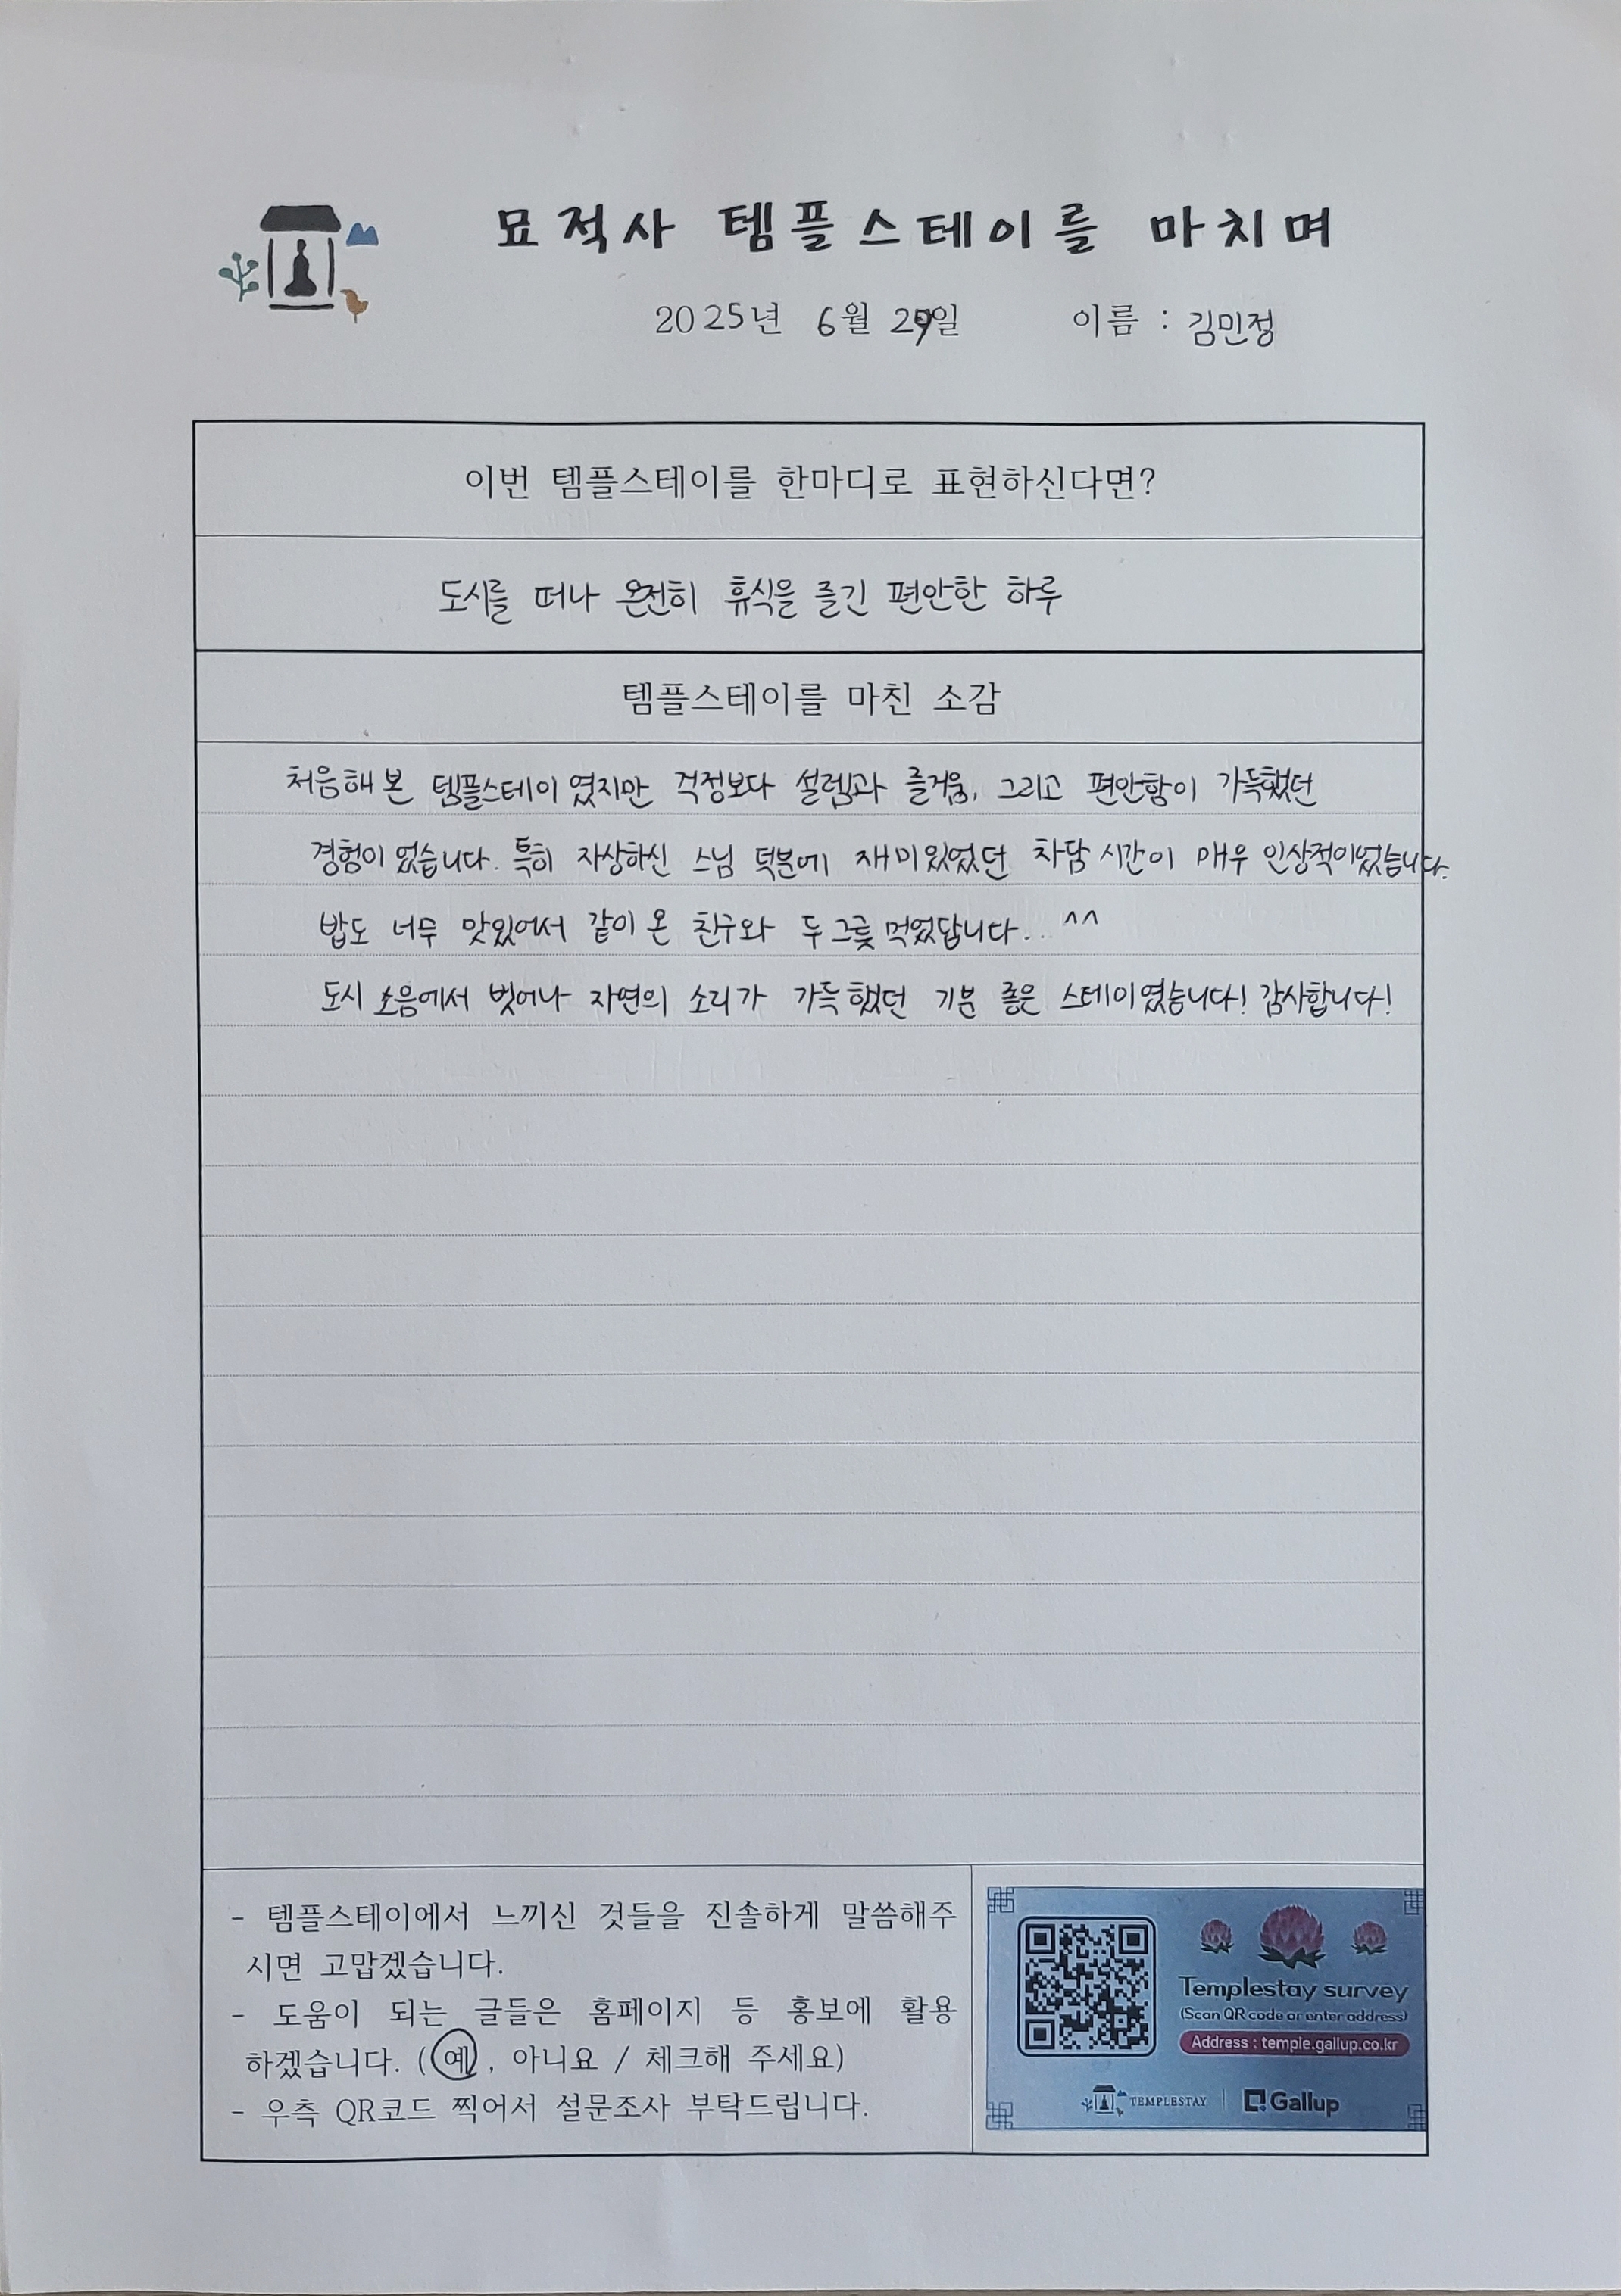 묘적사 템플스테이를 마치며
2025년 6월 29일 이름 : 김민정
이번 템플스테이를 한마디로 표현하신다면?
도시를 떠나 온전히 휴식을 즐긴 편안한 하루
템플스테이를 마친 소감
처음해 본 템플스테이였지만 걱정보다 설렘과 즐거움, 그리고 편안함이 가득했던
경험이었습니다. 특히 자상하신 스님 덕분에 재미있었던 차담 시간이 매우 인상적이었습니다.
밥도 너무 맛있어서 같이 온 친구와 두 그릇 먹었답니다... ^^
도시 소음에서 벗어나 자연의 소리가 가득했던 기분 좋은 스테이였습니다! 감사합니다!
- 템플스테이에서 느끼신 것들을 진솔하게 말씀해주
시면 고맙겠습니다.
- 도움이 되는 글들은 홈페이지 등 홍보에 활용
하겠습니다. (예, 아니요 / 체크해 주세요)
- 우측 QR코드 찍어서 설문조사 부탁드립니다.
Templestay survey
(Scan QR code or enter address)
Address : temple.gallup.co.kr
TEMPLESTAY | Gallup